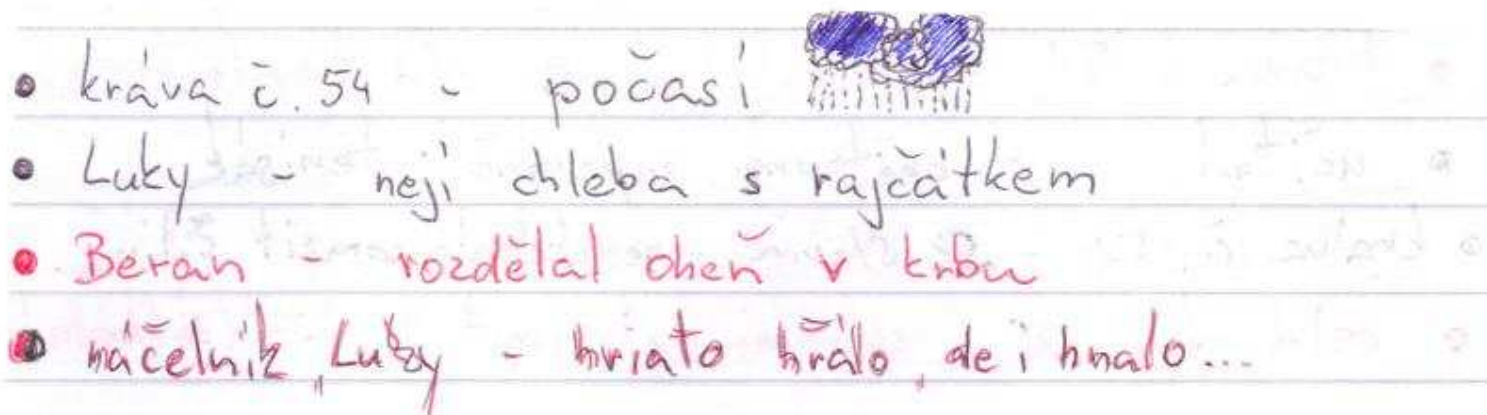 • kráva č. 54 - počasí
• Luky - nejí chleba s rajčátkem
• Beran - rozdělal oheň v krbu
• náčelník, Luky - hriato hřálo, de i hnalo...